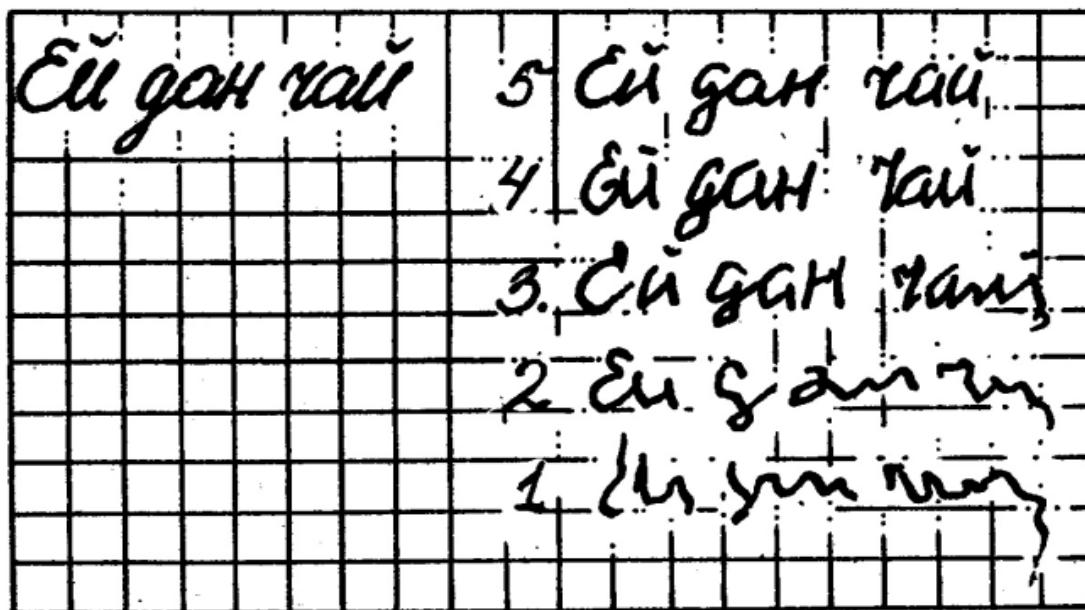 Ей дан чай
5 Ей дан чай
4 Ей дан чай
3. Ей дан чай
2 Ей
1.